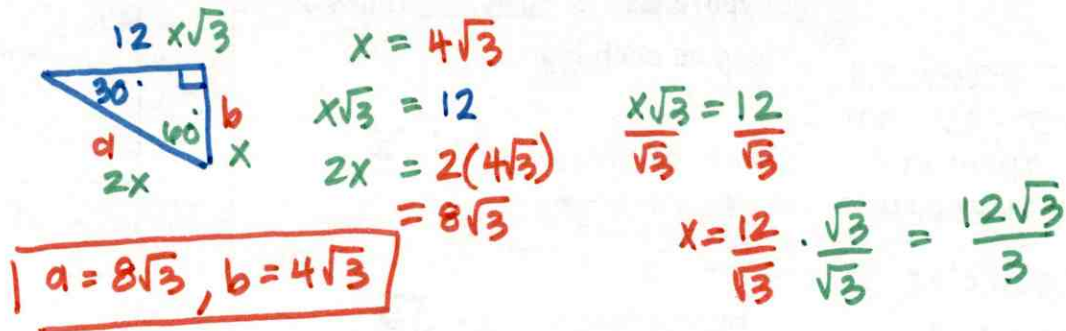 12 x√3
30°
60°
a
2x
b
x
x = 4√3
x√3 = 12
2x = 2(4√3)
= 8√3
x√3/√3 = 12/√3
x = 12/√3 · √3/√3 = 12√3/3
a = 8√3, b = 4√3